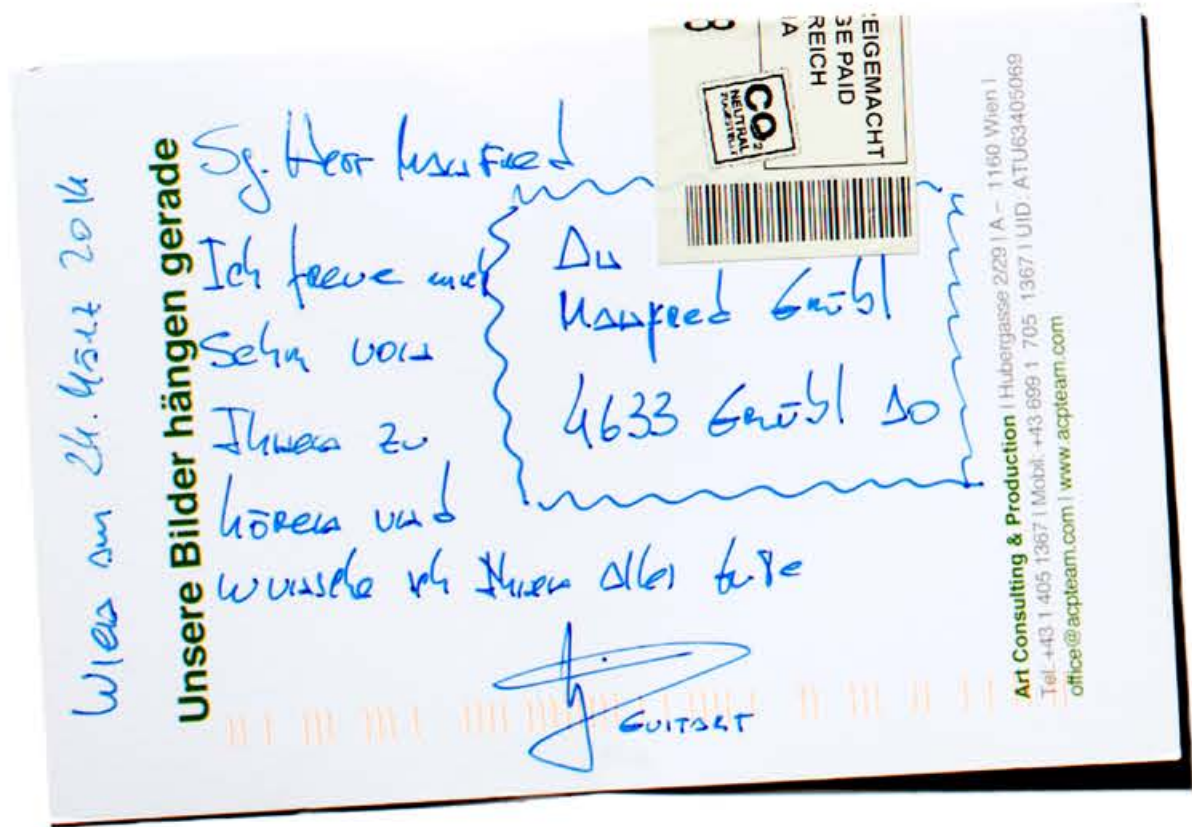 Wien am 24. März 2014
Unsere Bilder hängen gerade
Sg. Herr Manfred
Ich freue mich
Sehr von
Ihnen zu
hören und
wünsche ich Ihnen alles Gute
GUITART
An
Manfred Grübl
4633 Grübl 10
EIGEMACHT
GE PAID
REICH
IA
CO2
NEUTRAL
ZUGESTELLT
Art Consulting & Production | Hubergasse 2/29 | A – 1160 Wien |
Tel. +43 1 405 1367 | Mobil: +43 699 1 705 1367 | UID: ATU63405069
office@acpteam.com | www.acpteam.com